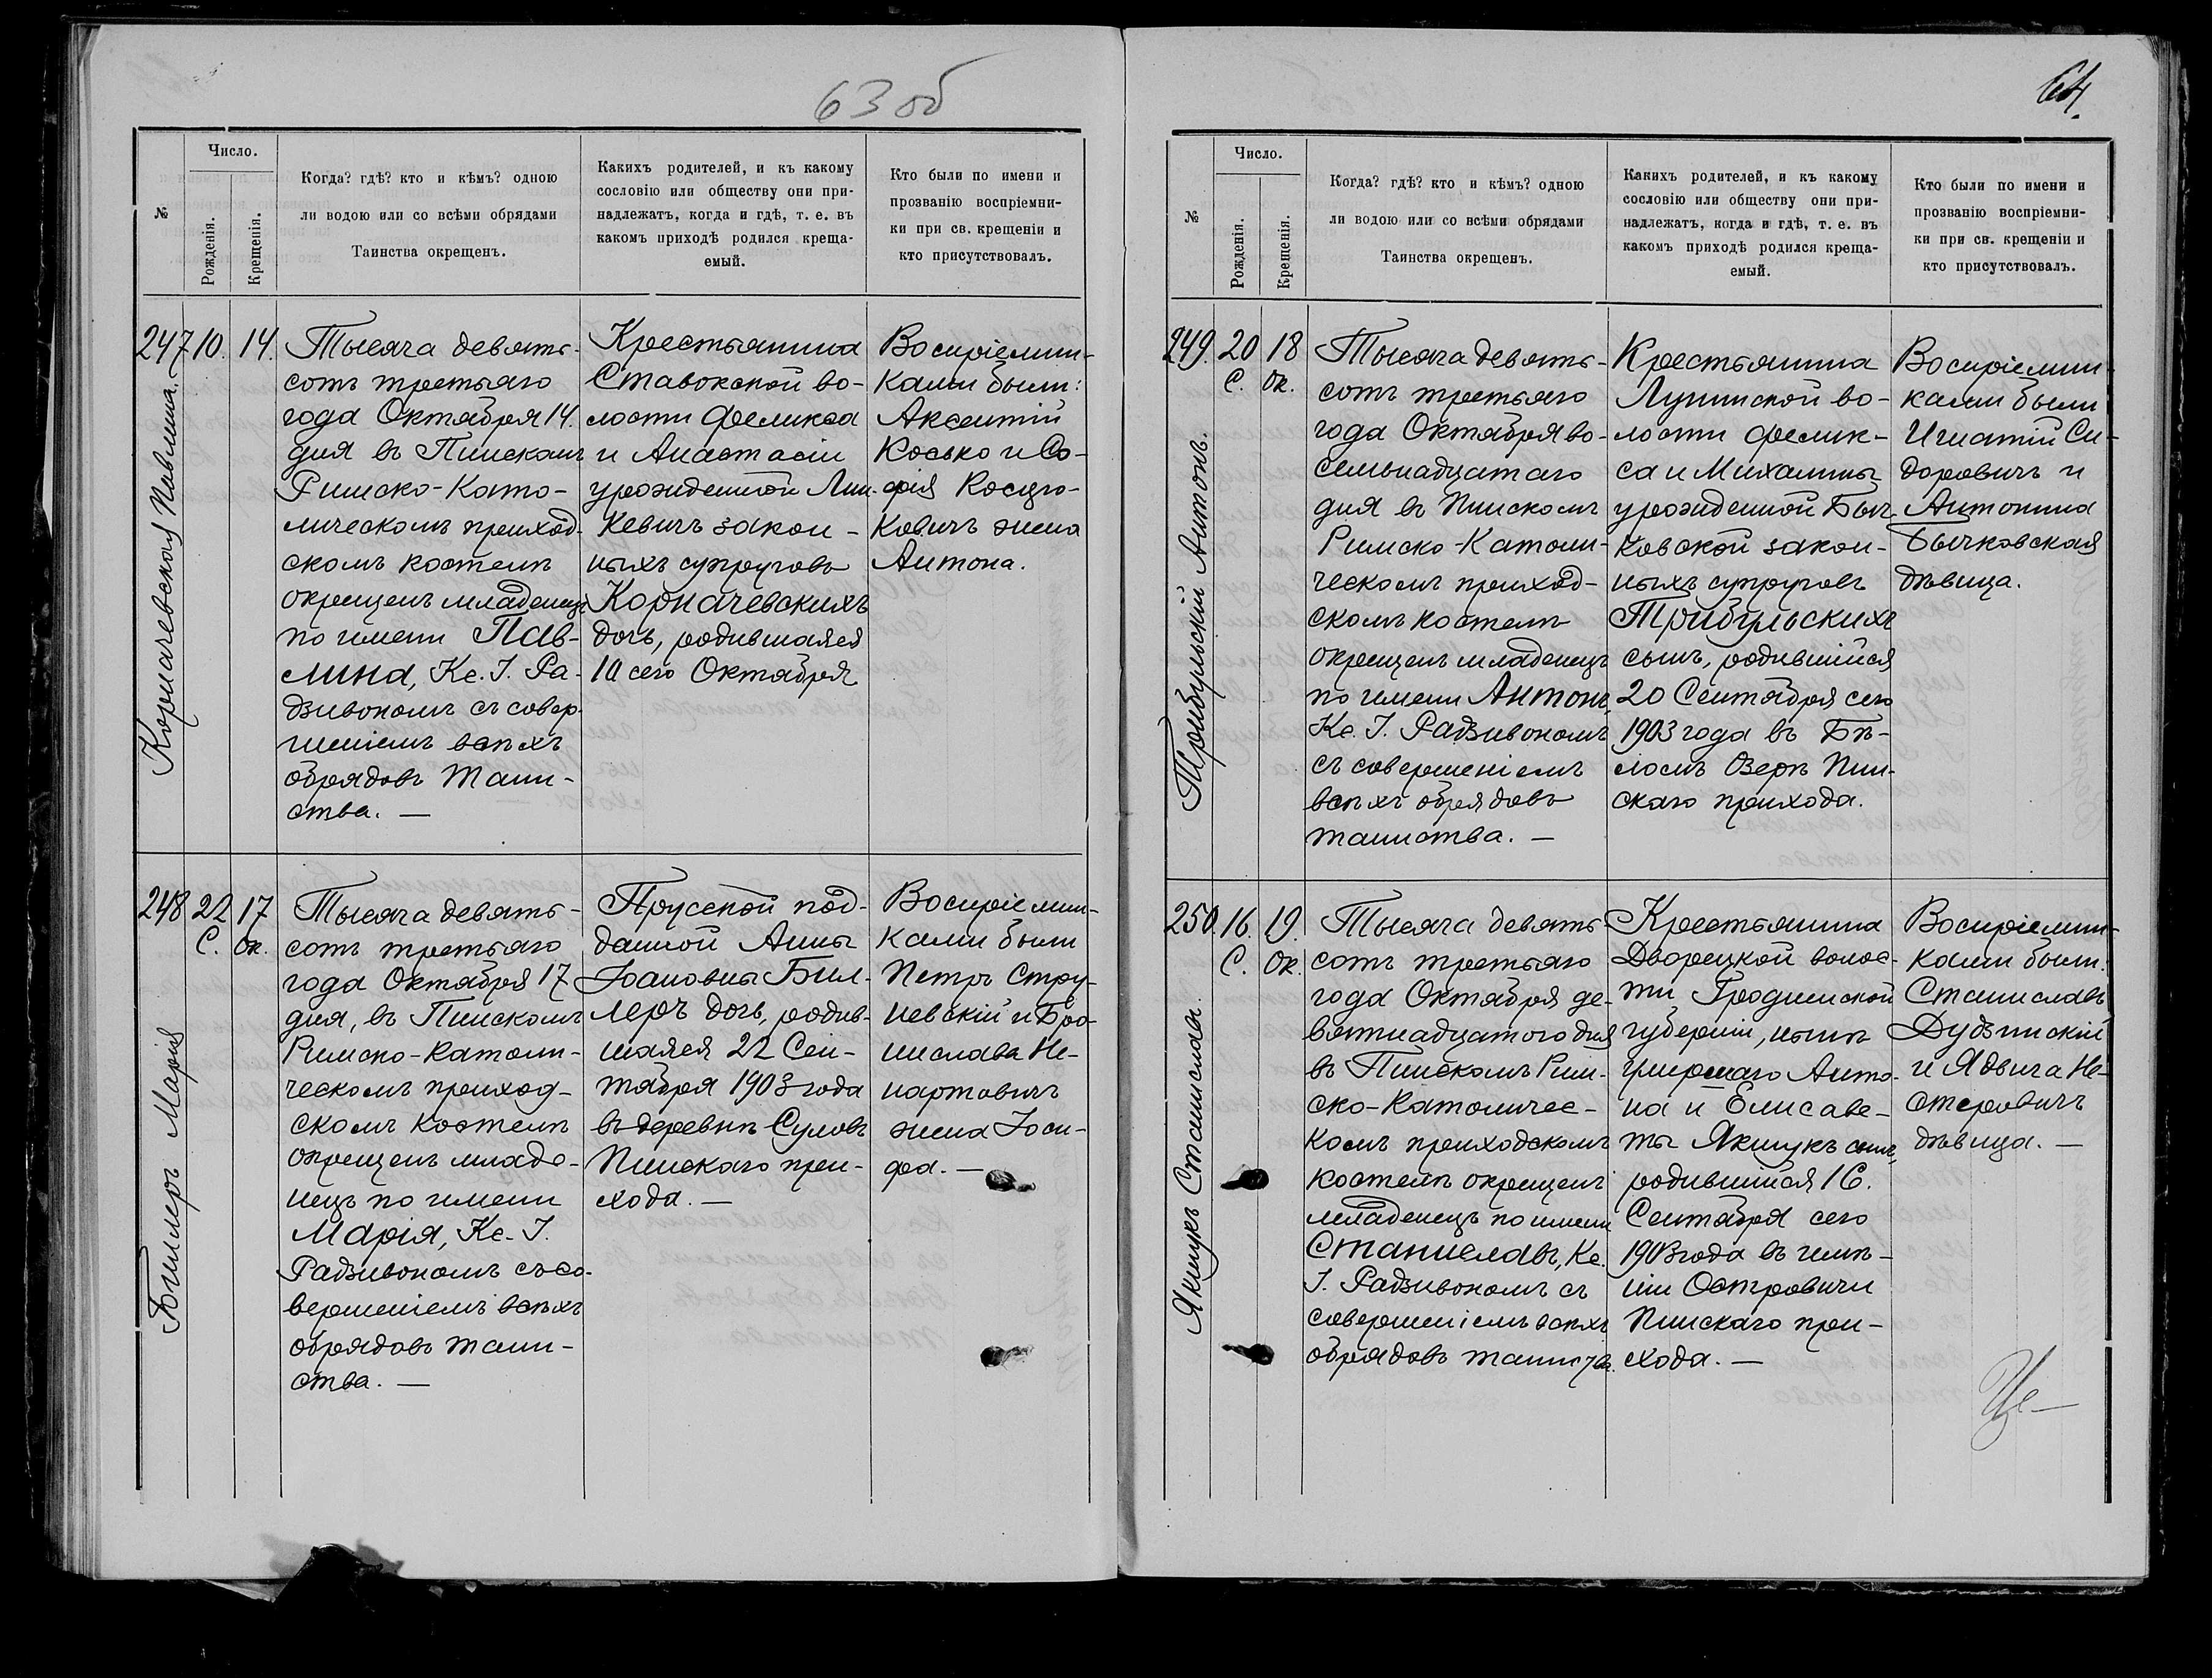 63 об
№
Число.
Рожденія.
Крещенія.
Когда? гдѣ? кто и кѣмъ? одною
ли водою или со всѣми обрядами
Таинства окрещенъ.
Какихъ родителей, и къ какому
сословію или обществу они при-
надлежатъ, когда и гдѣ, т. е. въ
какомъ приходѣ родился креща-
емый.
Кто были по имени и
прозванію воспріемни-
ки при св. крещеніи и
кто присутствовалъ.
247
10.
14.
Корначевская Павлина.
Тысяча девять-
сотъ третьяго
года Октября 14.
дня въ Пинскомъ
Римско-Като-
лическомъ приход-
скомъ костелѣ
окрещенъ младенецъ
по имени Пав-
лина, Кс. І. Ра-
дзивономъ съ совер-
шеніемъ всѣхъ
обрядовъ Таин-
ства. —
Крестьянина
Ставокской во-
лости Феликса
и Анастасіи
урожденной Лин-
кевичъ закон-
ныхъ супруговъ
Корначевскихъ
дочь, родившаяся
10 сего Октября
Воспріемни-
ками были:
Аксентій
Косько и Со-
фія Косцю-
ковичъ жена
Антона.
248
22
С.
17
Ок.
Биллеръ Марія
Тысяча девять-
сотъ третьяго
года Октября 17
дня, въ Пинскомъ
Римско-Католи-
ческомъ приход-
скомъ костелѣ
окрещенъ младе-
нецъ по имени
Марія, Кс. І.
Радзивономъ съ со-
вершеніемъ всѣхъ
обрядовъ таин-
ства. —
Прусской под-
данной Анны
Іоановны Бил-
леръ дочь, родив-
шаяся 22 Сен-
тября 1903 года
въ деревнѣ Суловъ
Пинскаго при-
хода. —
Воспріемни-
ками были
Петръ Стру-
невскій и Бро-
нислава Не-
нартовичъ
жена Іоси-
фа. —
64.
№
Число.
Рожденія.
Крещенія.
Когда? гдѣ? кто и кѣмъ? одною
ли водою или со всѣми обрядами
Таинства окрещенъ.
Какихъ родителей, и къ какому
сословію или обществу они при-
надлежатъ, когда и гдѣ, т. е. въ
какомъ приходѣ родился креща-
емый.
Кто были по имени и
прозванію воспріемни-
ки при св. крещеніи и
кто присутствовалъ.
249.
20
С.
18
Ок.
Трибульскій Антонъ.
Тысяча девять-
сотъ третьяго
года Октября во-
семьнадцатаго
дня въ Пинскомъ
Римско-Католи-
ческомъ приход-
скомъ костелѣ
окрещенъ младенецъ
по имени Антонъ,
Кс. І. Радзивономъ
съ совершеніемъ
всѣхъ обрядовъ
таинства. —
Крестьянина
Лунинской во-
лости Фелик-
са и Михалины
урожденной Быч-
ковской закон-
ныхъ супруговъ
Трибульскихъ
сынъ, родившійся
20 Сентября сего
1903 года въ Бѣ-
ломъ Озерѣ Пин-
скаго прихода.
Воспріемни-
ками были
Игнатій Си-
доровичъ и
Антонина
Бычковская
дѣвица.
250.
16.
С.
19.
Ок.
Якшукъ Станиславъ.
Тысяча девять-
сотъ третьяго
года Октября де-
вятнадцатого дня
въ Пинскомъ Рим-
ско-Католичес-
комъ приходскомъ
костелѣ окрещенъ
младенецъ по имени
Станиславъ, Кс.
І. Радзивономъ съ
совершеніемъ всѣхъ
обрядовъ таинства.
Крестьянина
Дворецкой волос-
ти Гродненской
губерніи, нынѣ
умершаго Анто-
на и Елисаве-
ты Якшукъ сынъ,
родившійся 16.
Сентября сего
1903 года въ имѣ-
ніи Островичи
Пинскаго при-
хода. —
Воспріемни-
ками были:
Станиславъ
Дудзинскій
и Ядвига Не-
стеровичъ
дѣвица. —